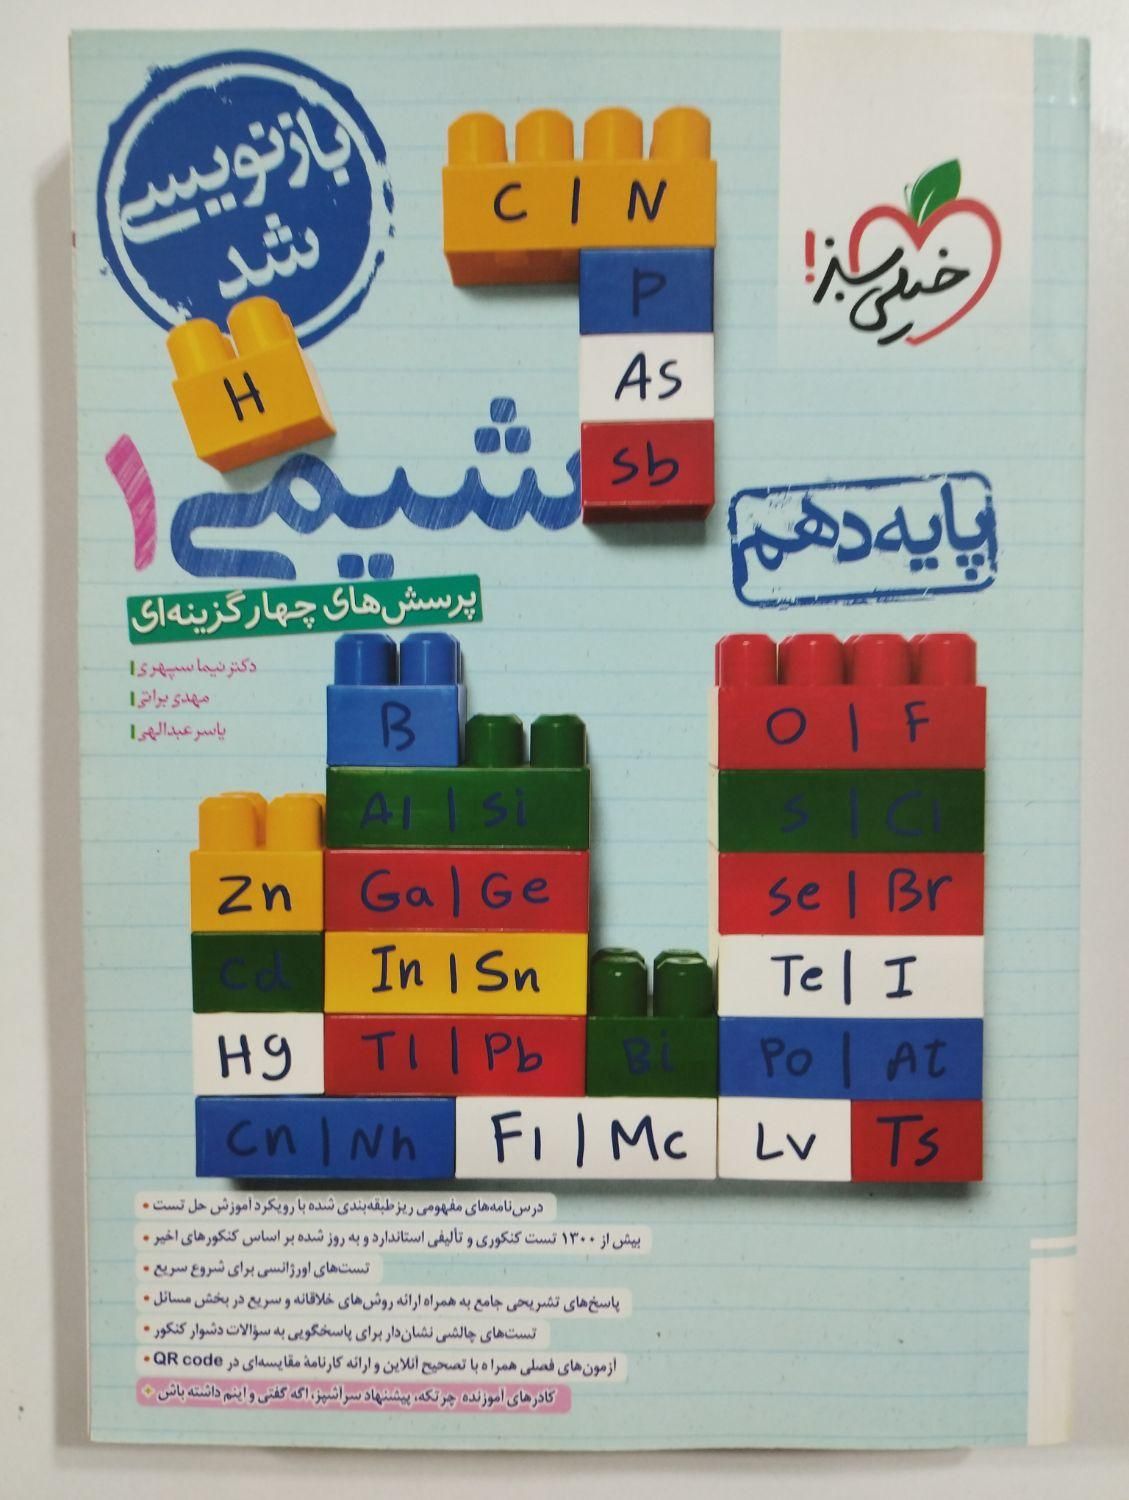 بازنویسی
شد
خیلی سبز!
C | N
P
As
Sb
H
شیمی ۱
پایه دهم
پرسش‌های چهارگزینه‌ای
دکتر نیما سپهری
مهدی براتی
یاسر عبدالهی
B
O | F
Al | Si
S | Cl
Zn
Ga | Ge
Se | Br
Cd
In | Sn
Te | I
Hg
Tl | Pb
Bi
Po | At
Cn | Nh
Fl | Mc
Lv
Ts
درس‌نامه‌های مفهومی ریزطبقه‌بندی شده با رویکرد آموزش حل تست •
بیش از ۱۳۰۰ تست کنکوری و تألیفی استاندارد و به روز شده بر اساس کنکورهای اخیر •
تست‌های اورژانسی برای شروع سریع •
پاسخ‌های تشریحی جامع به همراه ارائه روش‌های خلاقانه و سریع در بخش مسائل •
تست‌های چالشی نشان‌دار برای پاسخگویی به سؤالات دشوار کنکور •
آزمون‌های فصلی همراه با تصحیح آنلاین و ارائه کارنامهٔ مقایسه‌ای در QR code •
کادرهای آموزنده چرتکه، پیشنهاد سرآشپز، اگه گفتی و اینم داشته باش